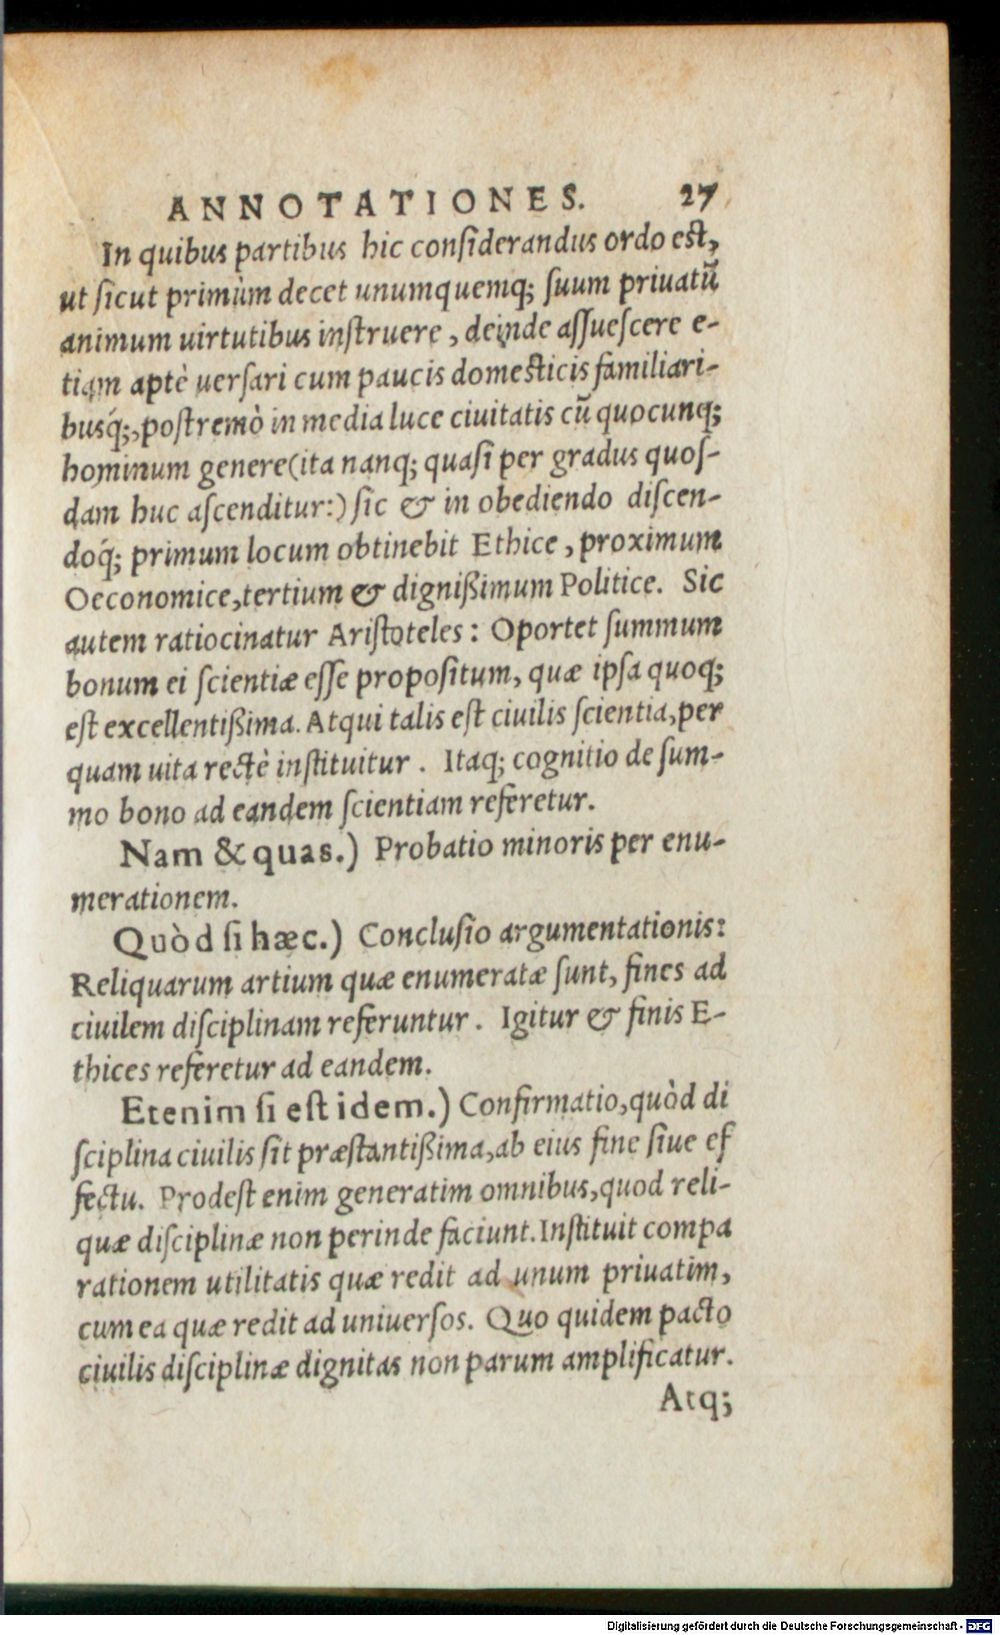 ANNOTATIONES. 27
In quibus partibus hic conſiderandus ordo eſt,
ut ſicut primùm decet unumquemq; ſuum priuatũ
animum uirtutibus inſtruere, deinde aſſueſcere e-
tiam aptè uerſari cum paucis domeſticis familiari-
busq́;, poſtremò in media luce ciuitatis cũ quocunq;
hominum genere(ita nanq; quaſi per gradus quoſ-
dam huc aſcenditur:) ſic & in obediendo diſcen-
doq́; primum locum obtinebit Ethice, proximum
Oeconomice, tertium & digniſsimum Politice. Sic
autem ratiocinatur Ariſtoteles: Oportet ſummum
bonum ei ſcientiæ eſſe propoſitum, quæ ipſa quoq;
eſt excellentiſsima. Atqui talis eſt ciuilis ſcientia, per
quam uita rectè inſtituitur. Itaq; cognitio de ſum-
mo bono ad eandem ſcientiam referetur.
Nam & quas.) Probatio minoris per enu-
merationem.
Quòd ſi hæc.) Concluſio argumentationis:
Reliquarum artium quæ enumeratæ ſunt, fines ad
ciuilem diſciplinam referuntur. Igitur & finis E-
thices referetur ad eandem.
Etenim ſi eſt idem.) Confirmatio, quòd di
ſciplina ciuilis ſit præſtantiſsima, ab eius fine ſiue ef
fectu. Prodeſt enim generatim omnibus, quod reli-
quæ diſciplinæ non perinde faciunt. Inſtituit compa
rationem utilitatis quæ redit ad unum priuatim,
cum ea quæ redit ad uniuerſos. Quo quidem pacto
ciuilis diſciplinæ dignitas non parum amplificatur.
Atq;
Digitalisierung gefördert durch die Deutsche Forschungsgemeinschaft - DFG